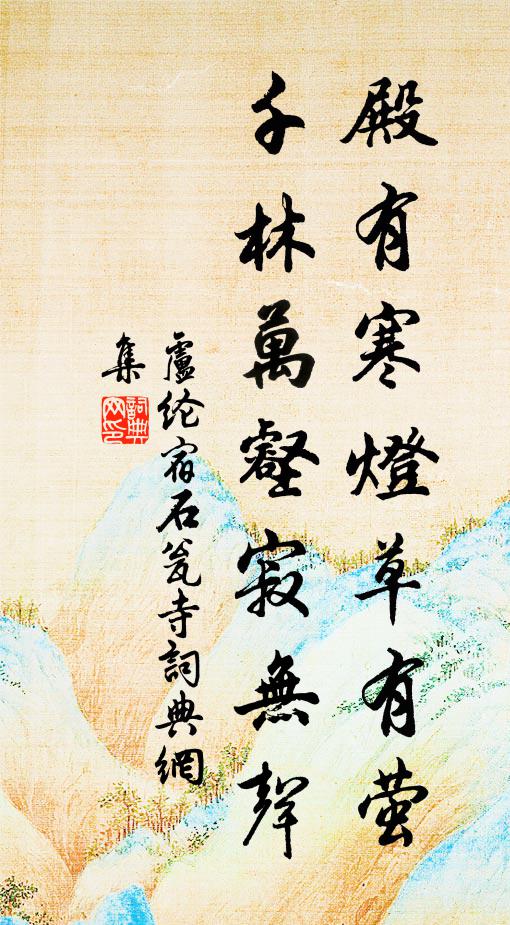 殿有寒燈草有萤
千林萬壑寂無聲
盧纶宿石瓮寺詞典網
集
詞典
网印